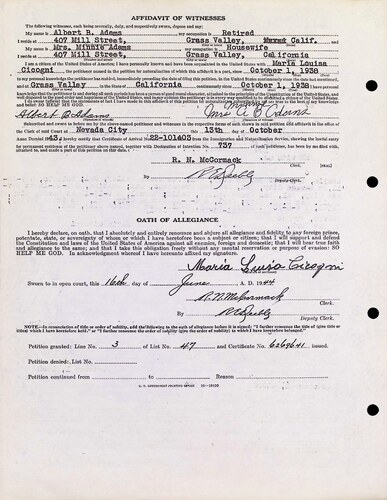 AFFIDAVIT OF WITNESSES
The following witnesses, each being severally, duly, and respectively sworn, depose and say:
My name is Albert B. Adams my occupation is Retired
I reside at 407 Mill Street, Grass Valley, Calif.
My name is Mrs. Minnie Adams my occupation is Housewife
I reside at 407 Mill Street, Grass Valley, California
I am a citizen of the United States of America; I have personally known and have been acquainted in the United States with Maria Louisa
Cicogni, the petitioner named in the petition for naturalization of which this affidavit is a part, since October 1, 1938
to my personal knowledge the petitioner has resided, immediately preceding the date of filing this petition, in the United States continuously since the date last mentioned,
and at Grass Valley in the California continuously since October 1, 1938
Albert B. Adams Mrs A B Adams
Subscribed and sworn to before me by the above-named petitioner and witnesses in the respective forms of oath shown in said petition and affidavit in the office of
the Clerk of said Court at Nevada City this 13th day of October
Anno Domini 1943 I hereby certify that Certificate of Arrival No. 22-101403 from the Immigration and Naturalization Service, showing the lawful entry
for permanent residence of the petitioner above named, together with Declaration of Intention No. 737 of such petitioner, has been by me filed with,
attached to, and made a part of this petition on this date.
R. N. McCormack
By
Deputy Clerk.
OATH OF ALLEGIANCE
I hereby declare, on oath, that I absolutely and entirely renounce and abjure all allegiance and fidelity to any foreign prince,
potentate, state, or sovereignty of whom or which I have heretofore been a subject or citizen; that I will support and defend
the Constitution and laws of the United States of America against all enemies, foreign and domestic; that I will bear true faith
and allegiance to the same; and that I take this obligation freely without any mental reservation or purpose of evasion: SO
HELP ME GOD. In acknowledgment whereof I have hereunto affixed my signature.
Maria Luisa Cicogni
Sworn to in open court, this 16th day of June A. D. 1944
R. N. McCormack
Clerk.
By
Deputy Clerk.
NOTE.—In renunciation of title or order of nobility, add the following to the oath of allegiance before it is signed: "I further renounce the title of (give title or
titles) which I have heretofore held," or "I further renounce the order of nobility (give the order of nobility) to which I have heretofore belonged."
Petition granted: Line No. 3 of List No. 47 and Certificate No. 6269641 issued.
Petition denied: List No.
Petition continued from to Reason